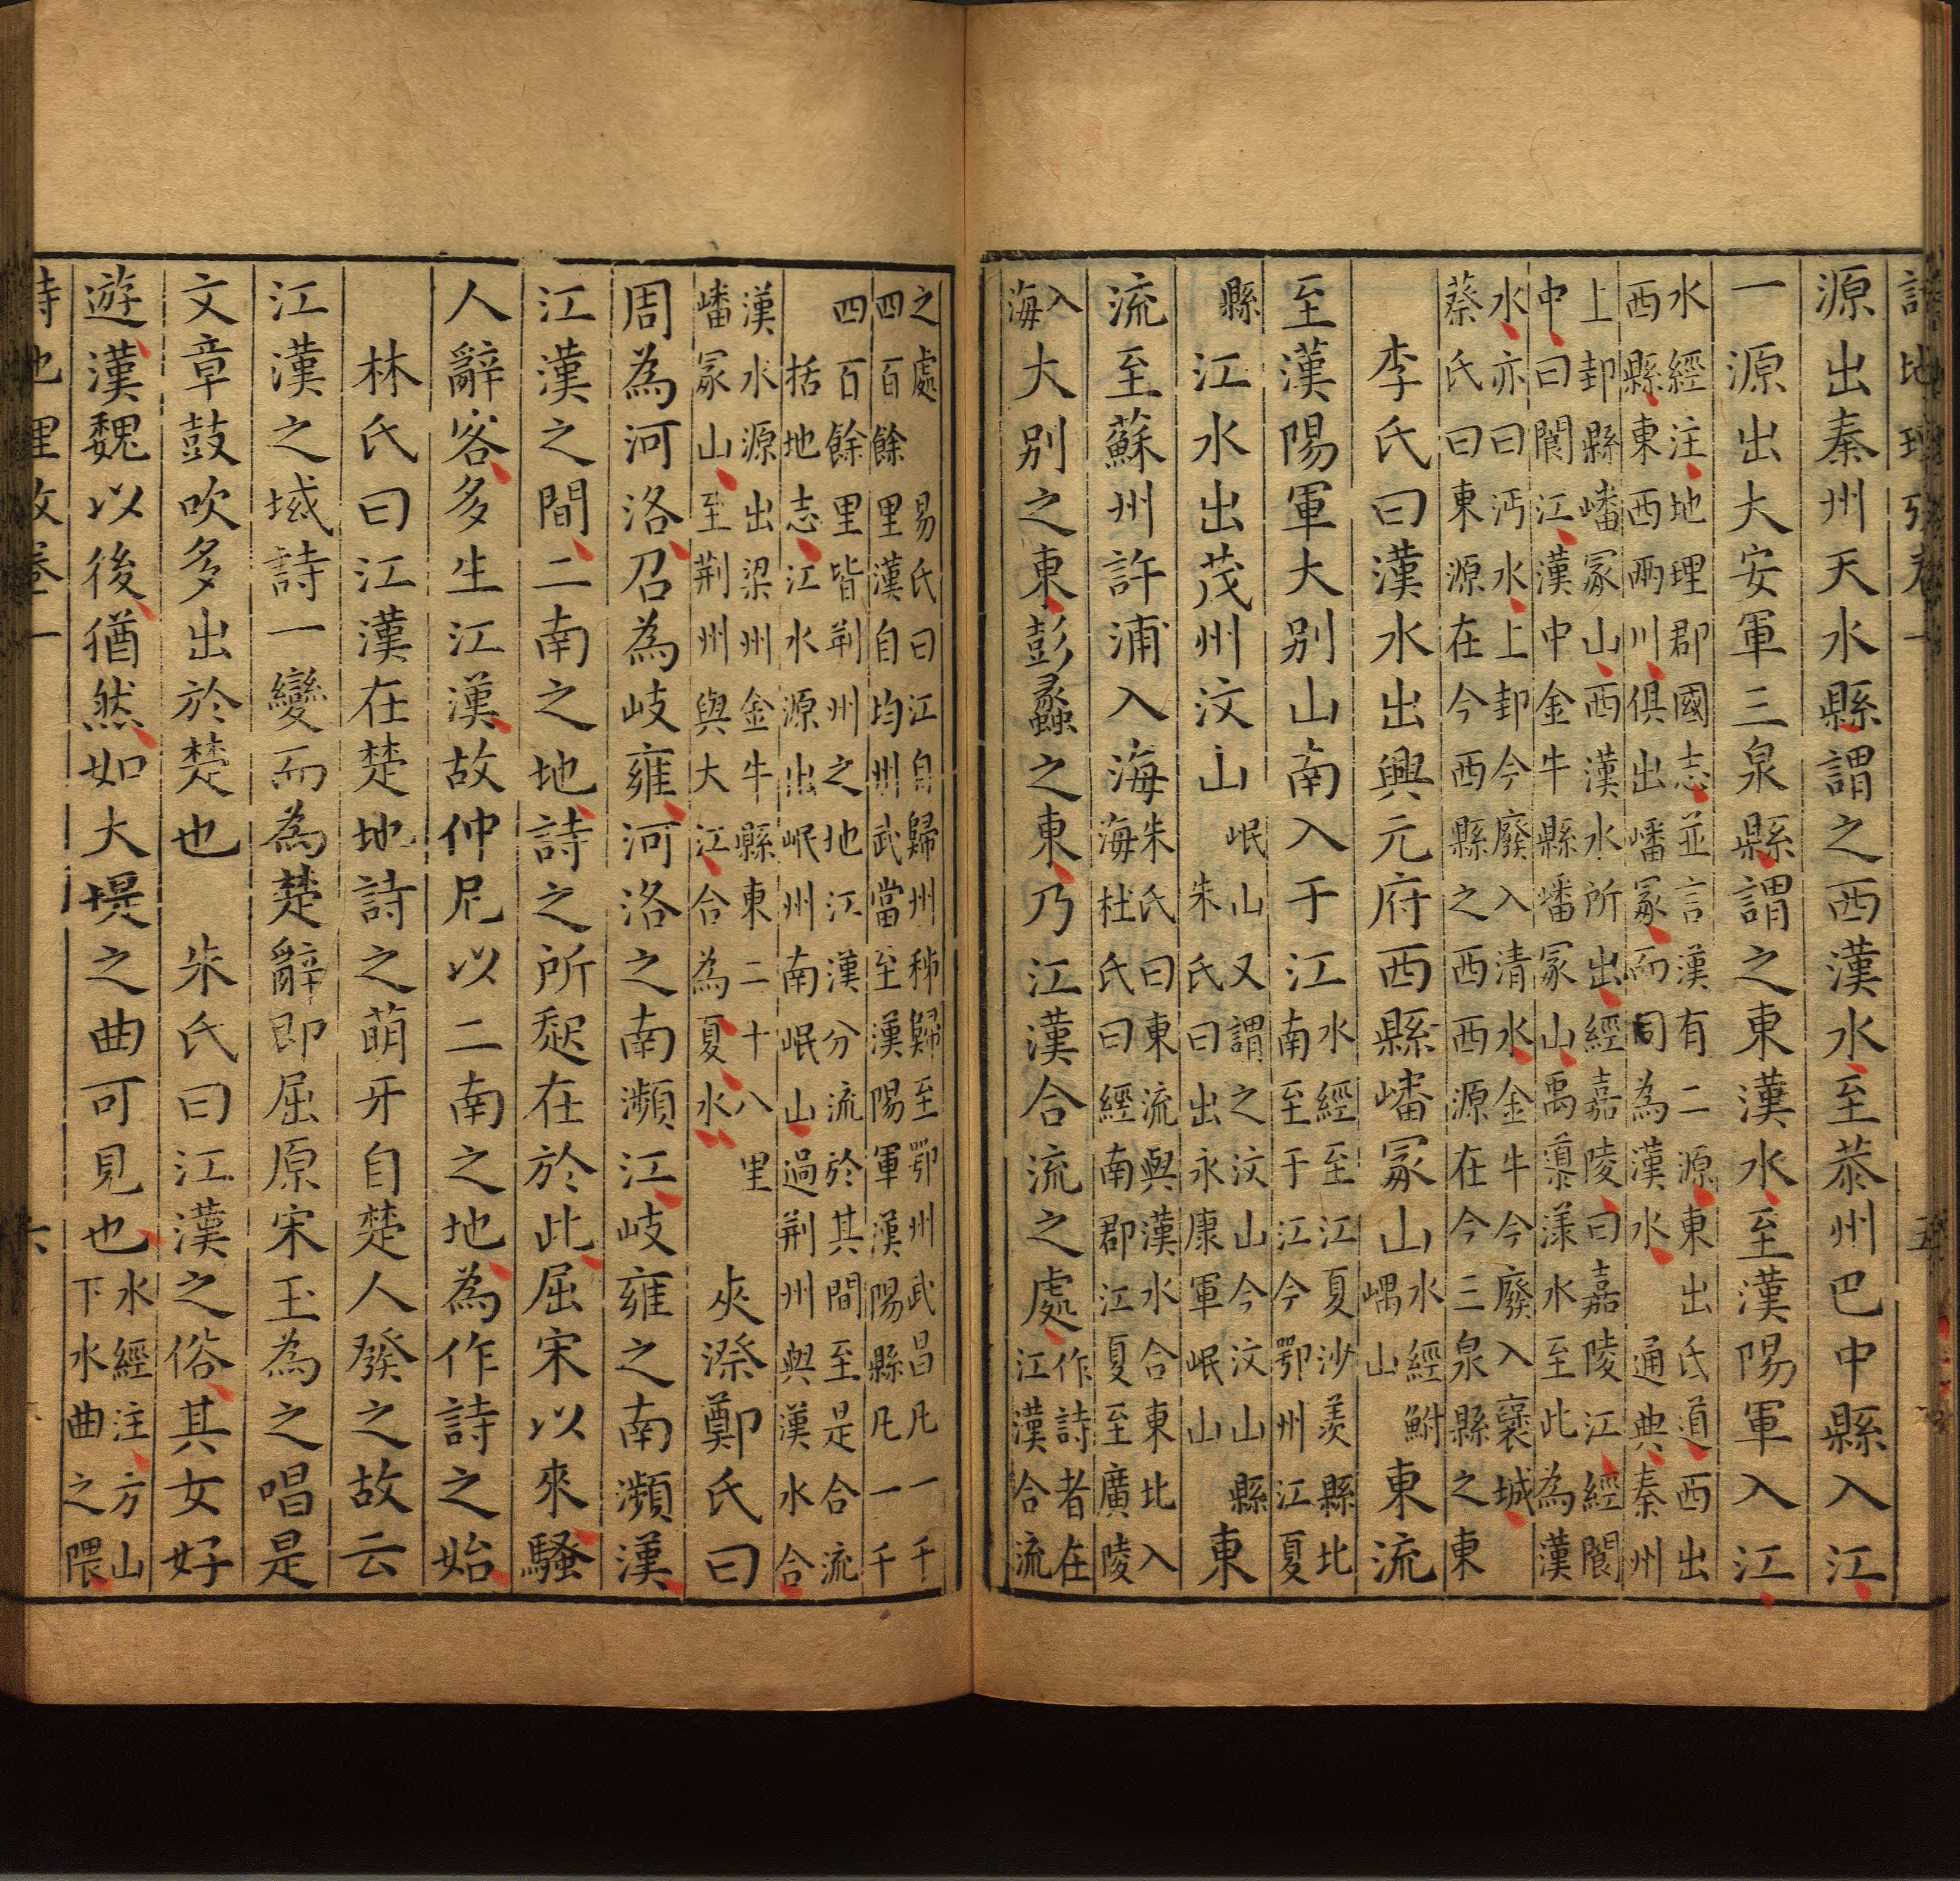 詩地理攷卷一 五
源出秦州天水縣謂之西漢水至恭州巴中縣入江
一源出大安軍三泉縣謂之東漢水至漢陽軍入江
水經注地理郡國志並言漢有二源東出氐道西出
西縣東西兩川俱出嶓冢而同為漢水 通典秦州
上邽縣嶓冢山西漢水所出經嘉陵曰嘉陵江經閬
中曰閬江漢中金牛縣嶓冢山禹導漾水至此為漢
水亦曰沔水上邽今廢入清水金牛今廢入襃城
蔡氏曰東源在今西縣之西西源在今三泉縣之東
李氏曰漢水出興元府西縣嶓冢山水經鮒嵎山東流
至漢陽軍大別山南入于江水經至江夏沙羨縣北南至于江今鄂州江夏
縣江水出茂州汶山岷山又謂之汶山今汶山縣朱氏曰出永康軍岷山東
流至蘇州許浦入海朱氏曰東流與漢水合東北入海杜氏曰經南郡江夏至廣陵
入海大別之東彭蠡之東乃江漢合流之處作詩者在江漢合流
之處 易氏曰江自歸州秭歸至鄂州武昌凡一千
四百餘里漢自均州武當至漢陽軍漢陽縣凡一千
四百餘里皆荊州之地江漢分流於其間至是合流
括地志江水源出岷州南岷山過荊州與漢水合
漢水源出梁州金牛縣東二十八里嶓冢山至荊州與大江合為夏水 夾漈鄭氏曰
周為河洛召為岐雍河洛之南瀕江岐雍之南瀕漢
江漢之間二南之地詩之所起在於此屈宋以來騷
人辭客多生江漢故仲尼以二南之地為作詩之始
林氏曰江漢在楚地詩之萌牙自楚人發之故云
江漢之域詩一變而為楚辭即屈原宋玉為之唱是
文章鼓吹多出於楚也 朱氏曰江漢之俗其女好
遊漢魏以後猶然如大堤之曲可見也水經注方山下水曲之隈
詩地理攷卷一 六